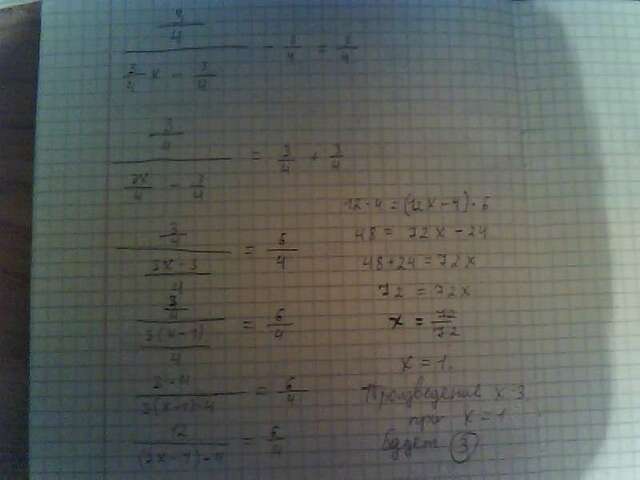 3/4 / (3/4 x - 3/4) - 3/4 = 3/4
3/4 / (3x/4 - 3/4) = 3/4 + 3/4
3/4 / ((3x-3)/4) = 6/4
3/4 / (3(x-1)/4) = 6/4
= 6/4
12 = 6/4
12·4 = (12x-4)·6
48 = 72x-24
48+24 = 72x
72 = 72x
x = 72/72
x = 1.
Произведение x·3
при x = 1
будет 3